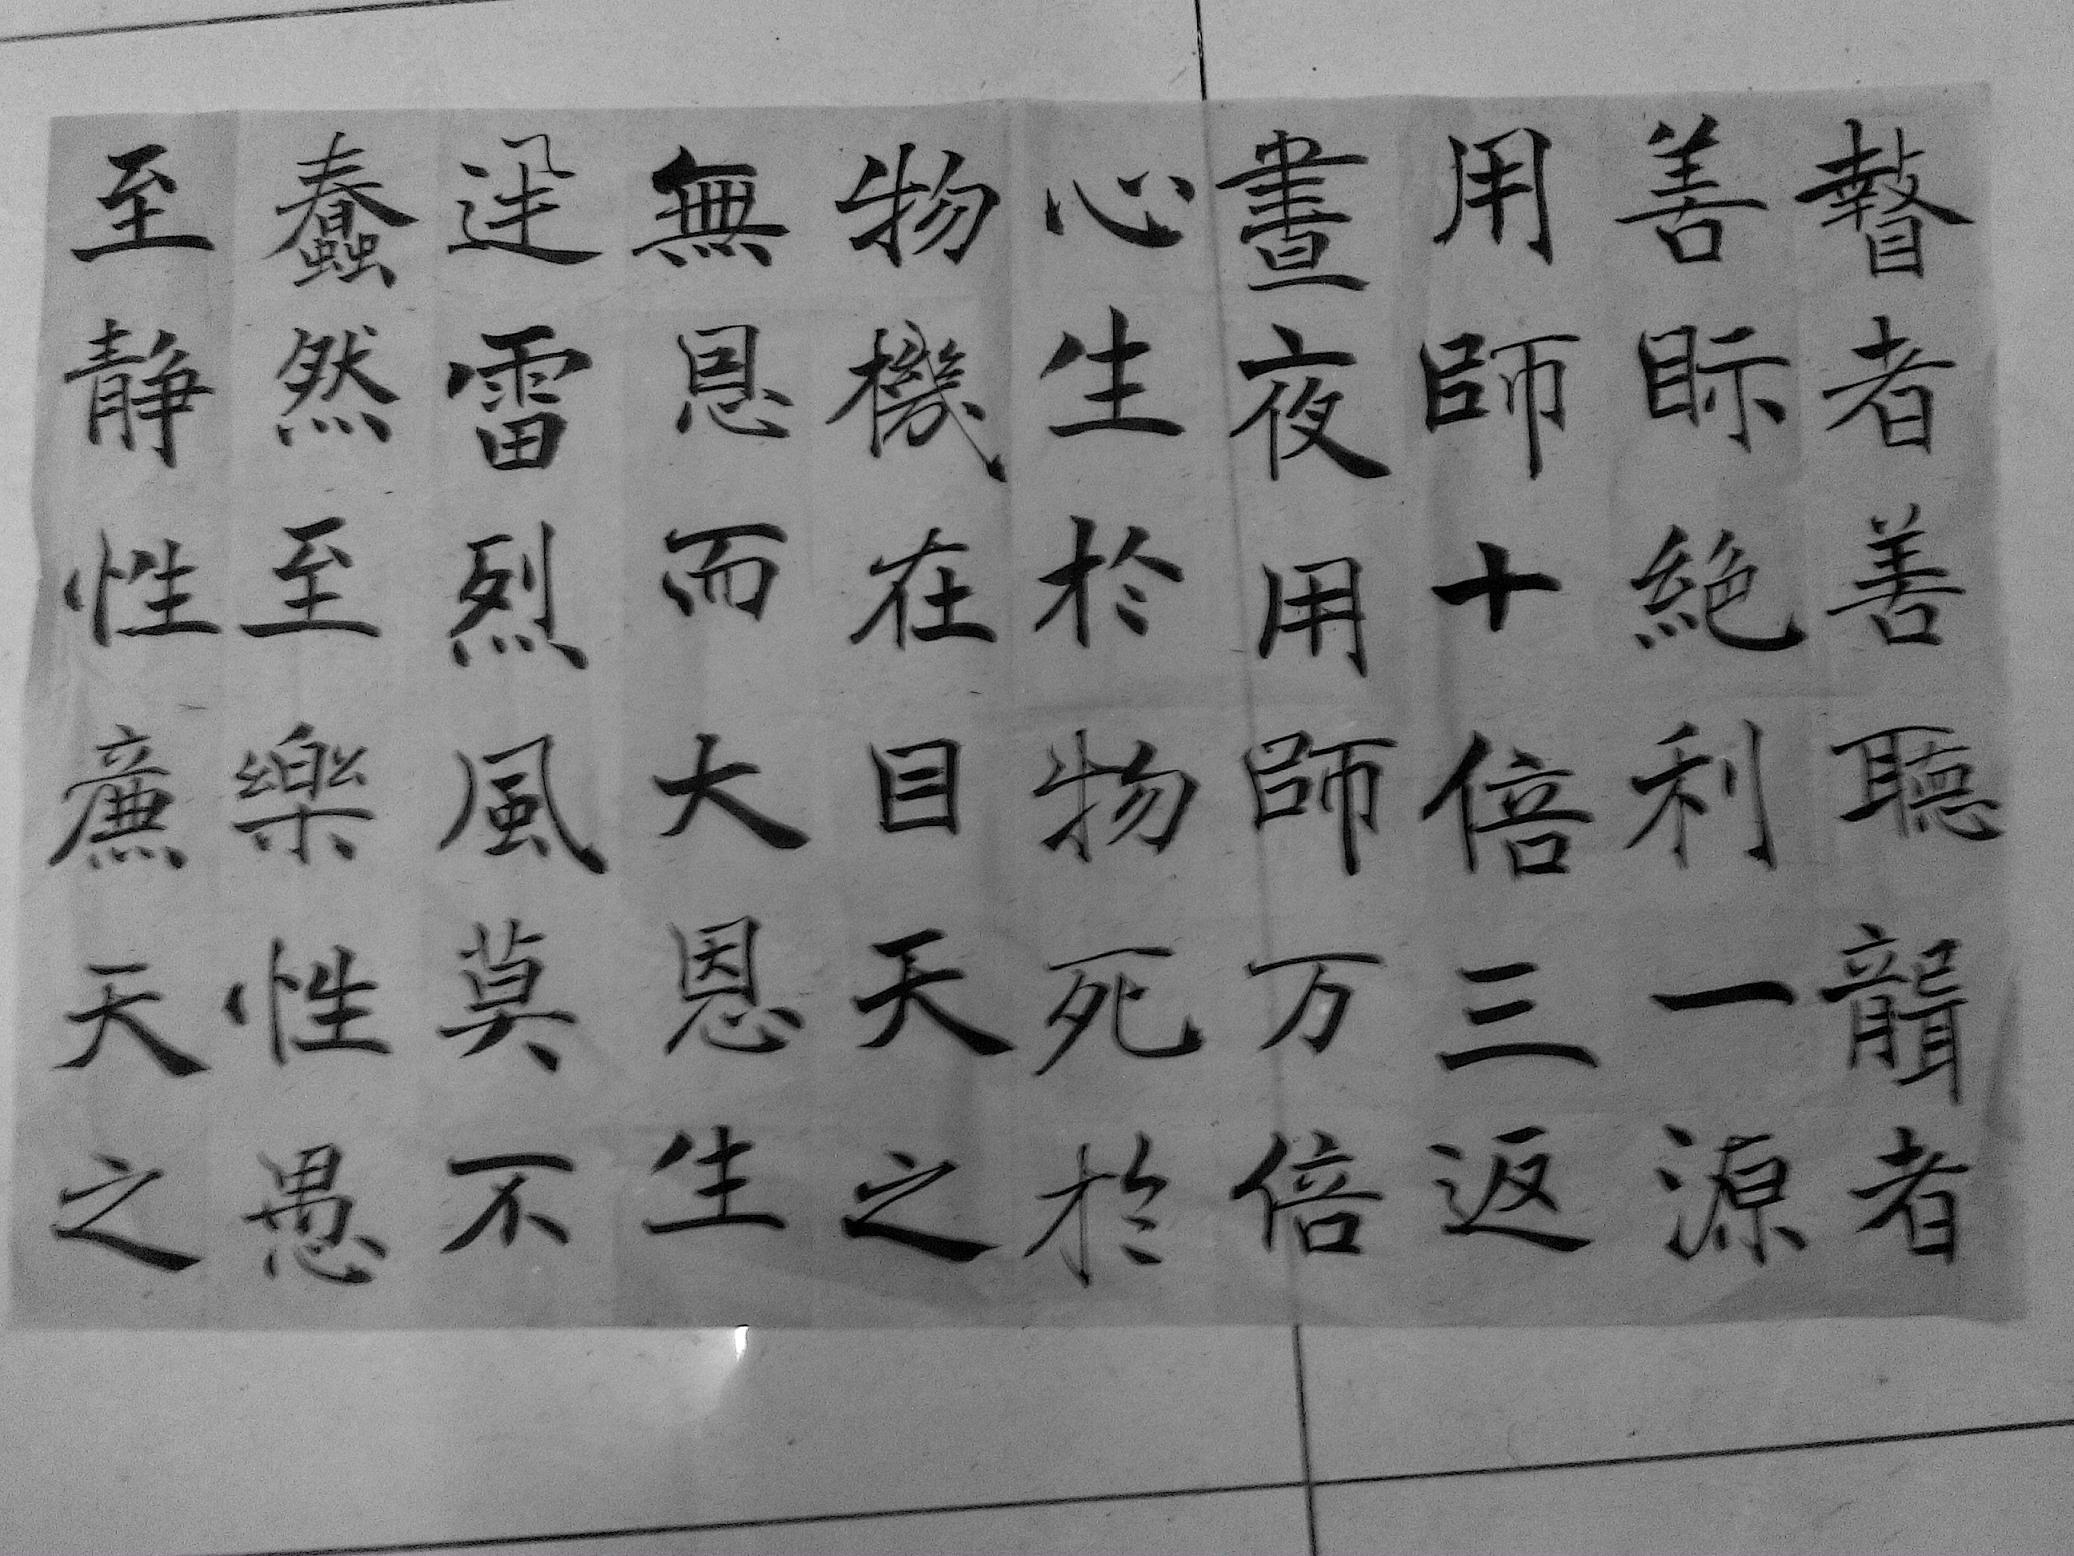 瞽者善聽聾者
善眎絶利一源
用師十倍三返
晝夜用師万倍
心生於物死於
物機在目天之
無恩而大恩生
迅雷烈風莫不
蠢然至樂性愚
至静性廉天之